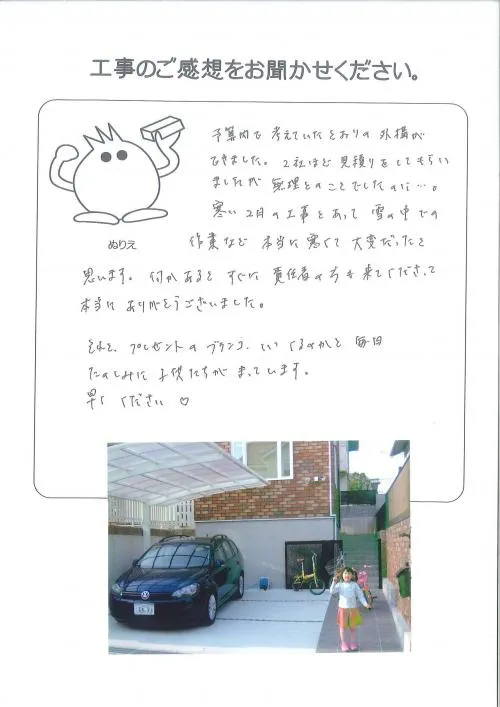 工事のご感想をお聞かせください。
予算内で考えていたとおりの外構が
できました。2社ほど見積りをしてもらい
ましたが無理とのことでしたのに…。
寒い2月の工事とあって雪の中での
ぬりえ
作業など本当に寒くて大変だったと
思います。何かあるとすぐに責任者の方も来てくださって
本当にありがとうございました。
それと、プレゼントのブランコ、いつくるのかと毎日
たのしみに子供たちがまっています。
早く ください♡